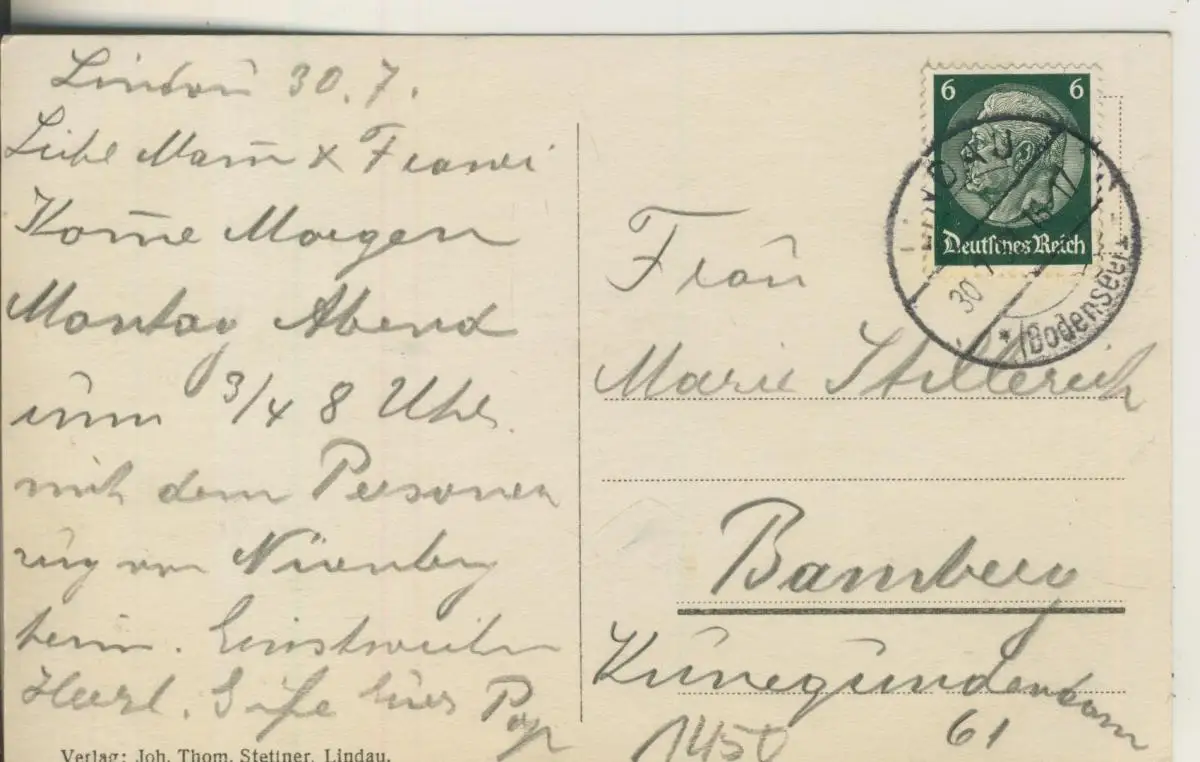 Lindau 30.7.
Liebe Mam̅ x Franzi
Kom̅e Morgen
Montag Abend
um 3/4 8 Uhr
mit dem Personen
zug von Nürnberg
heim. Einstweilen
Herzl. Grüße Euer Pap
Verlag: Joh. Thom. Stettner, Lindau.
6 6
Deutsches Reich
LINDAU
30. 7. 17
* (Bodensee) *
Frau
Marie
Bamberg
Kunegundendam
61
1450